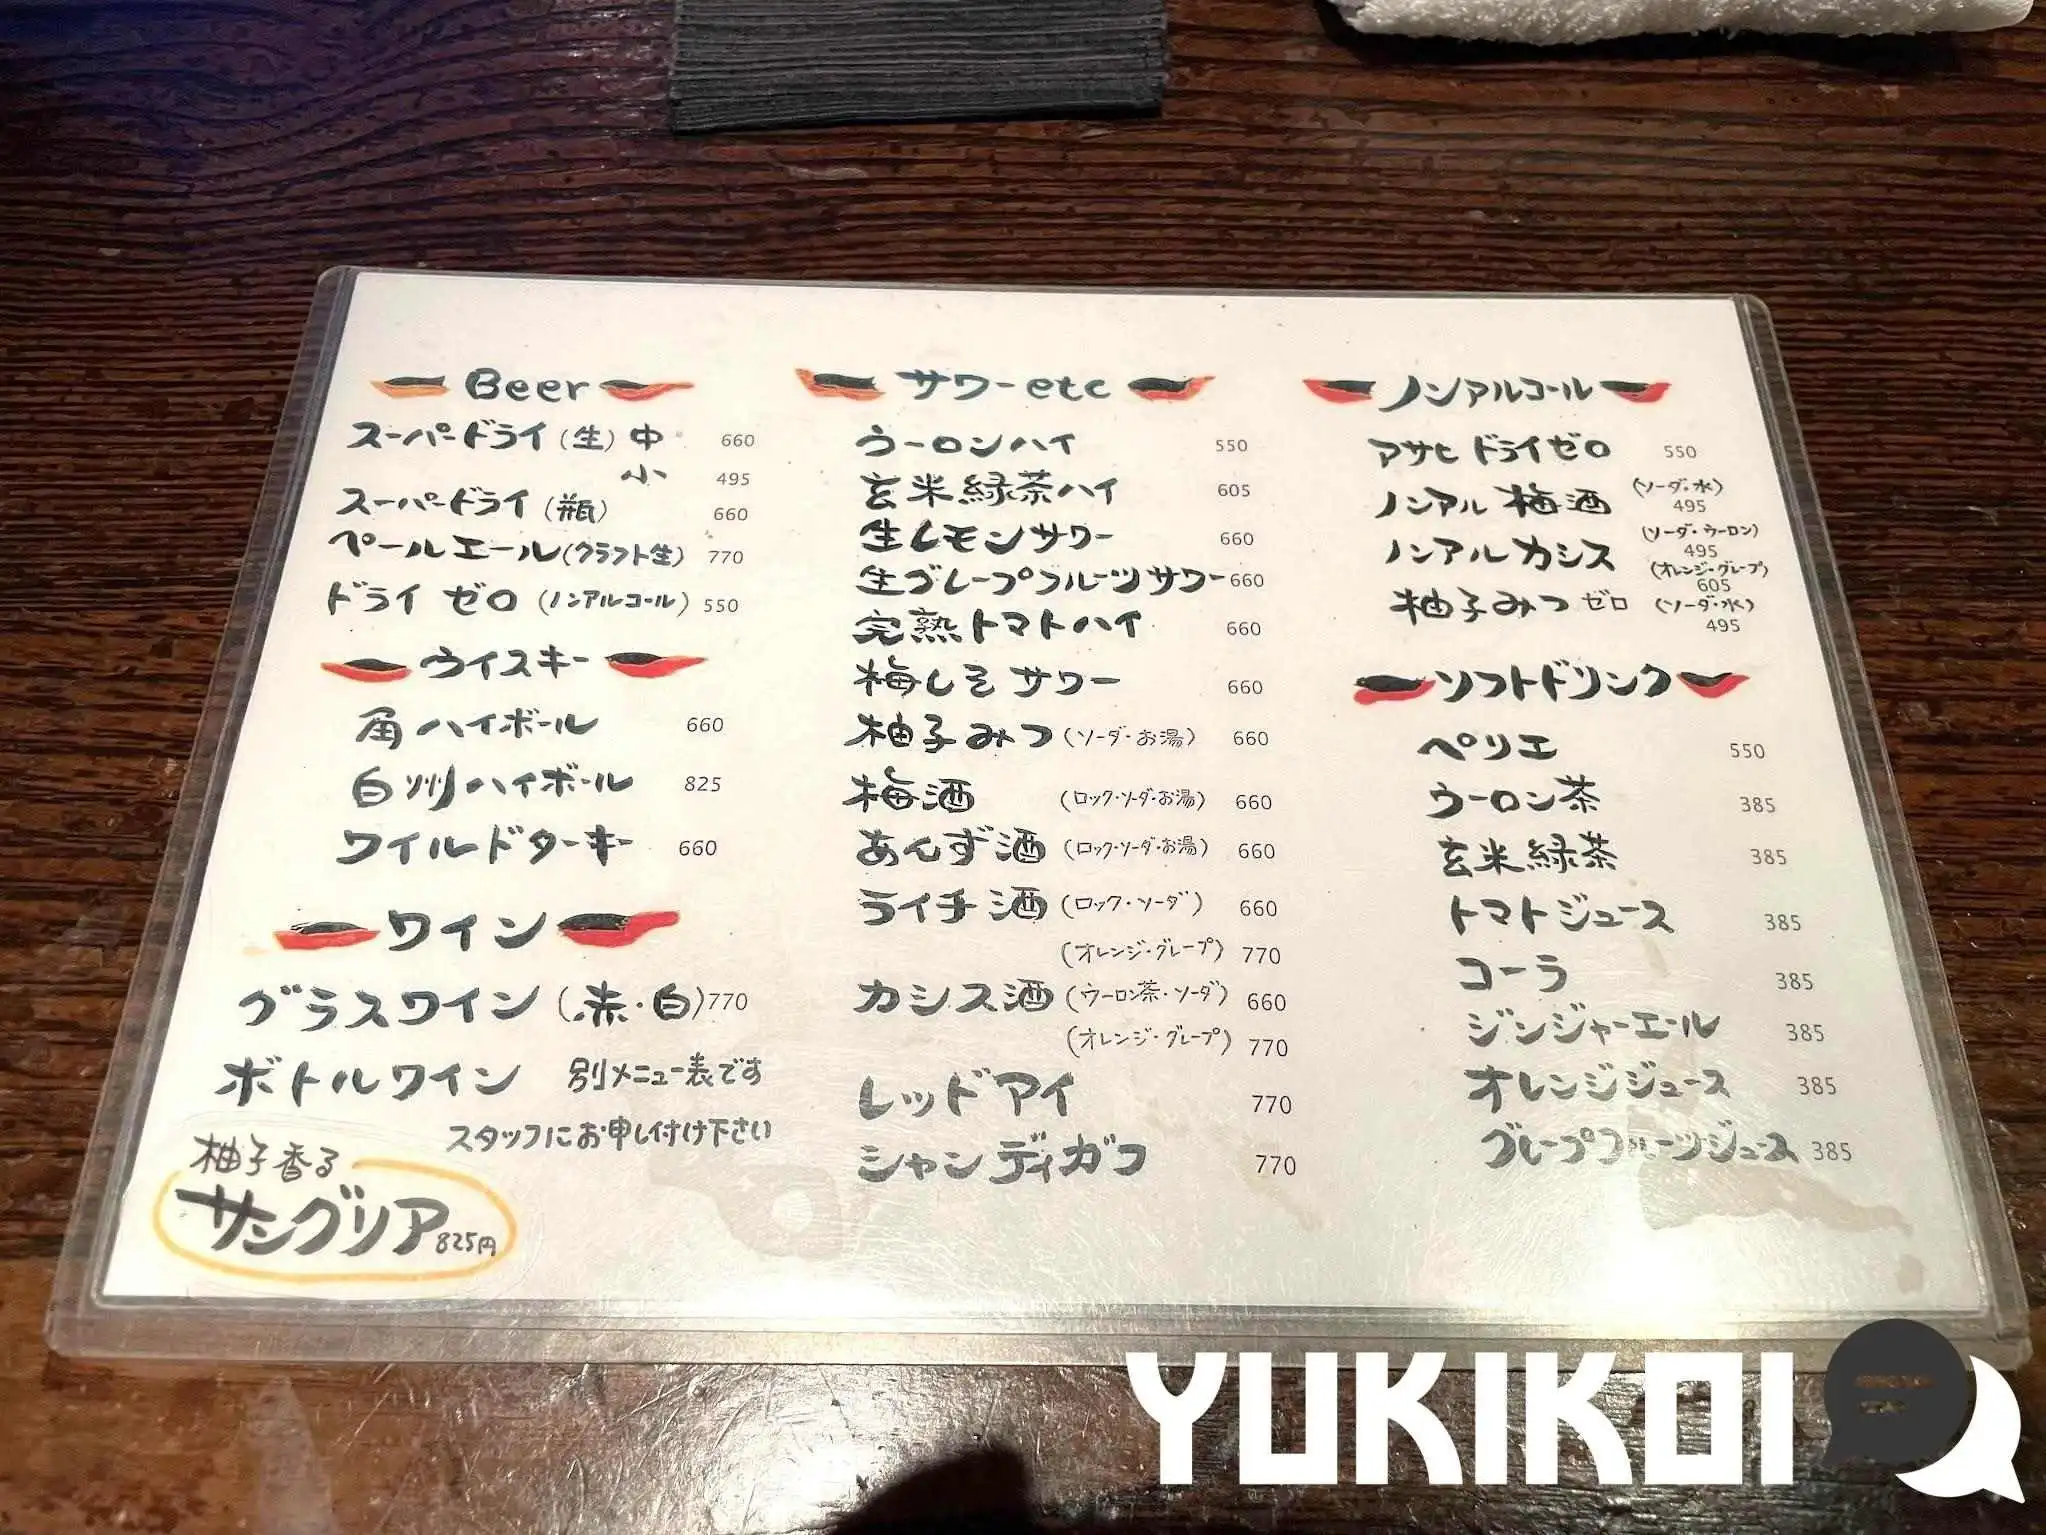 Beer
スーパードライ(生) 中 660
小 495
スーパードライ(瓶) 660
ペールエール(クラフト生) 770
ドライ ゼロ(ノンアルコール) 550
ウイスキー
角ハイボール 660
白州ハイボール 825
ワイルドターキー 660
ワイン
グラスワイン(赤・白) 770
ボトルワイン 別メニュー表です
スタッフにお申し付け下さい
柚子香る
サングリア 825円
サワーetc
ウーロンハイ 550
玄米緑茶ハイ 605
生レモンサワー 660
生グレープフルーツサワー 660
完熟トマトハイ 660
梅しそサワー 660
柚子みつ(ソーダ・お湯) 660
梅酒(ロック・ソーダ・お湯) 660
あんず酒(ロック・ソーダ・お湯) 660
ライチ酒(ロック・ソーダ) 660
(オレンジ・グレープ) 770
カシス酒(ウーロン茶・ソーダ) 660
(オレンジ・グレープ) 770
レッドアイ 770
シャンディガフ 770
ノンアルコール
アサヒ ドライゼロ 550
ノンアル 梅酒 (ソーダ・水) 495
ノンアルカシス (ソーダ・ウーロン) 495
(オレンジ・グレープ) 605
柚子みつゼロ (ソーダ・水) 495
ソフトドリンク
ペリエ 550
ウーロン茶 385
玄米緑茶 385
トマトジュース 385
コーラ 385
ジンジャーエール 385
オレンジジュース 385
グレープフルーツジュース 385
YUKIKOI